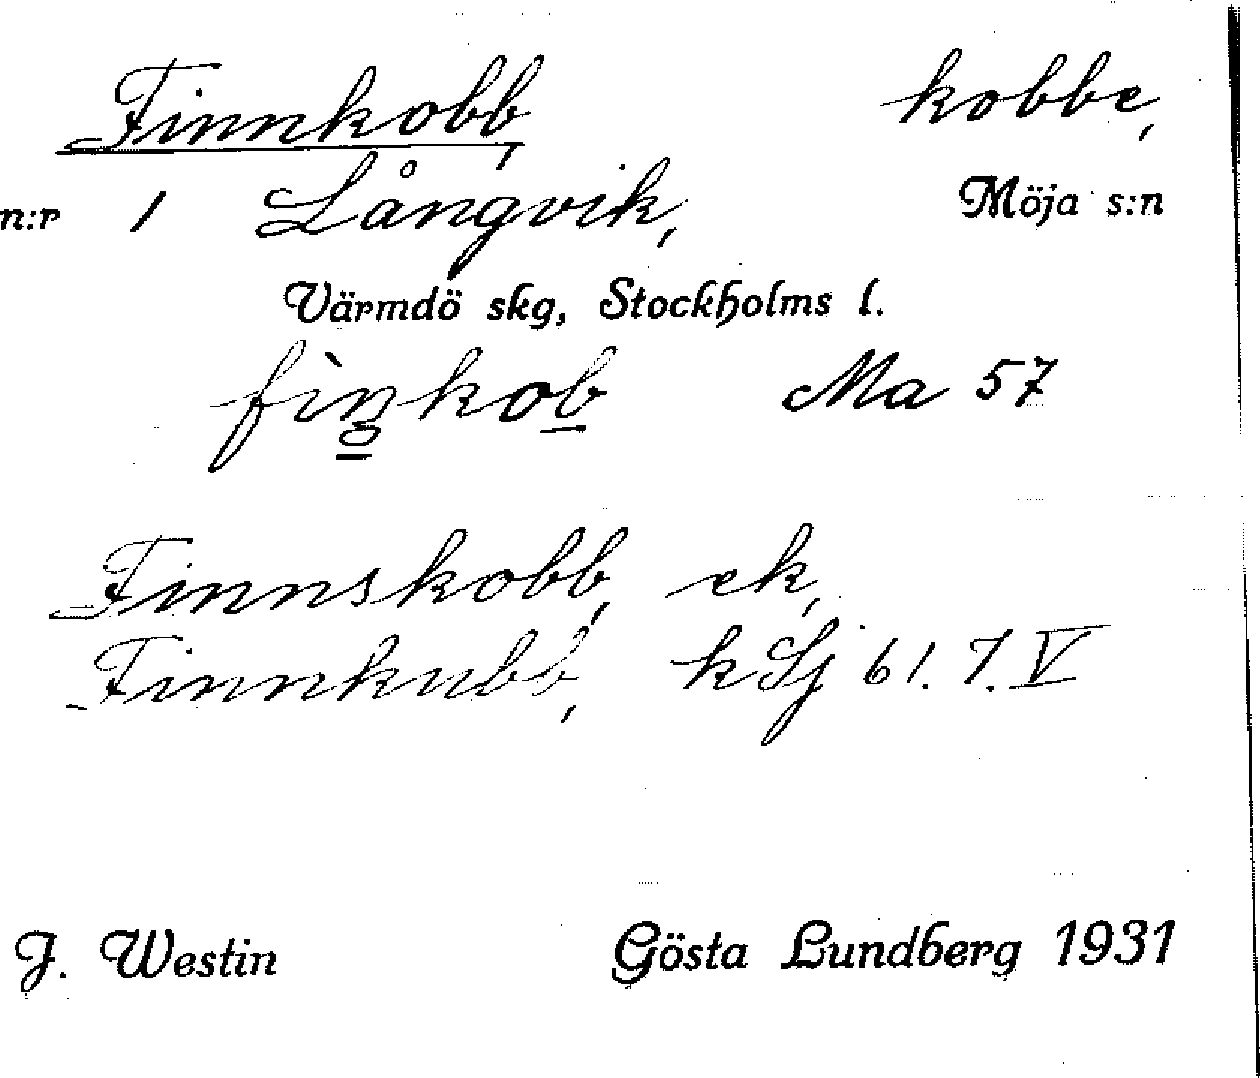 Finnkobb, kobbe,
n:r 1 Långvik, Möja s:n
Värmdö skg, Stockholms l.
Ma 57
Finnskobb, ek,
Finnkubb, kSj 61.7.V
J. Westin Gösta Lundberg 1931